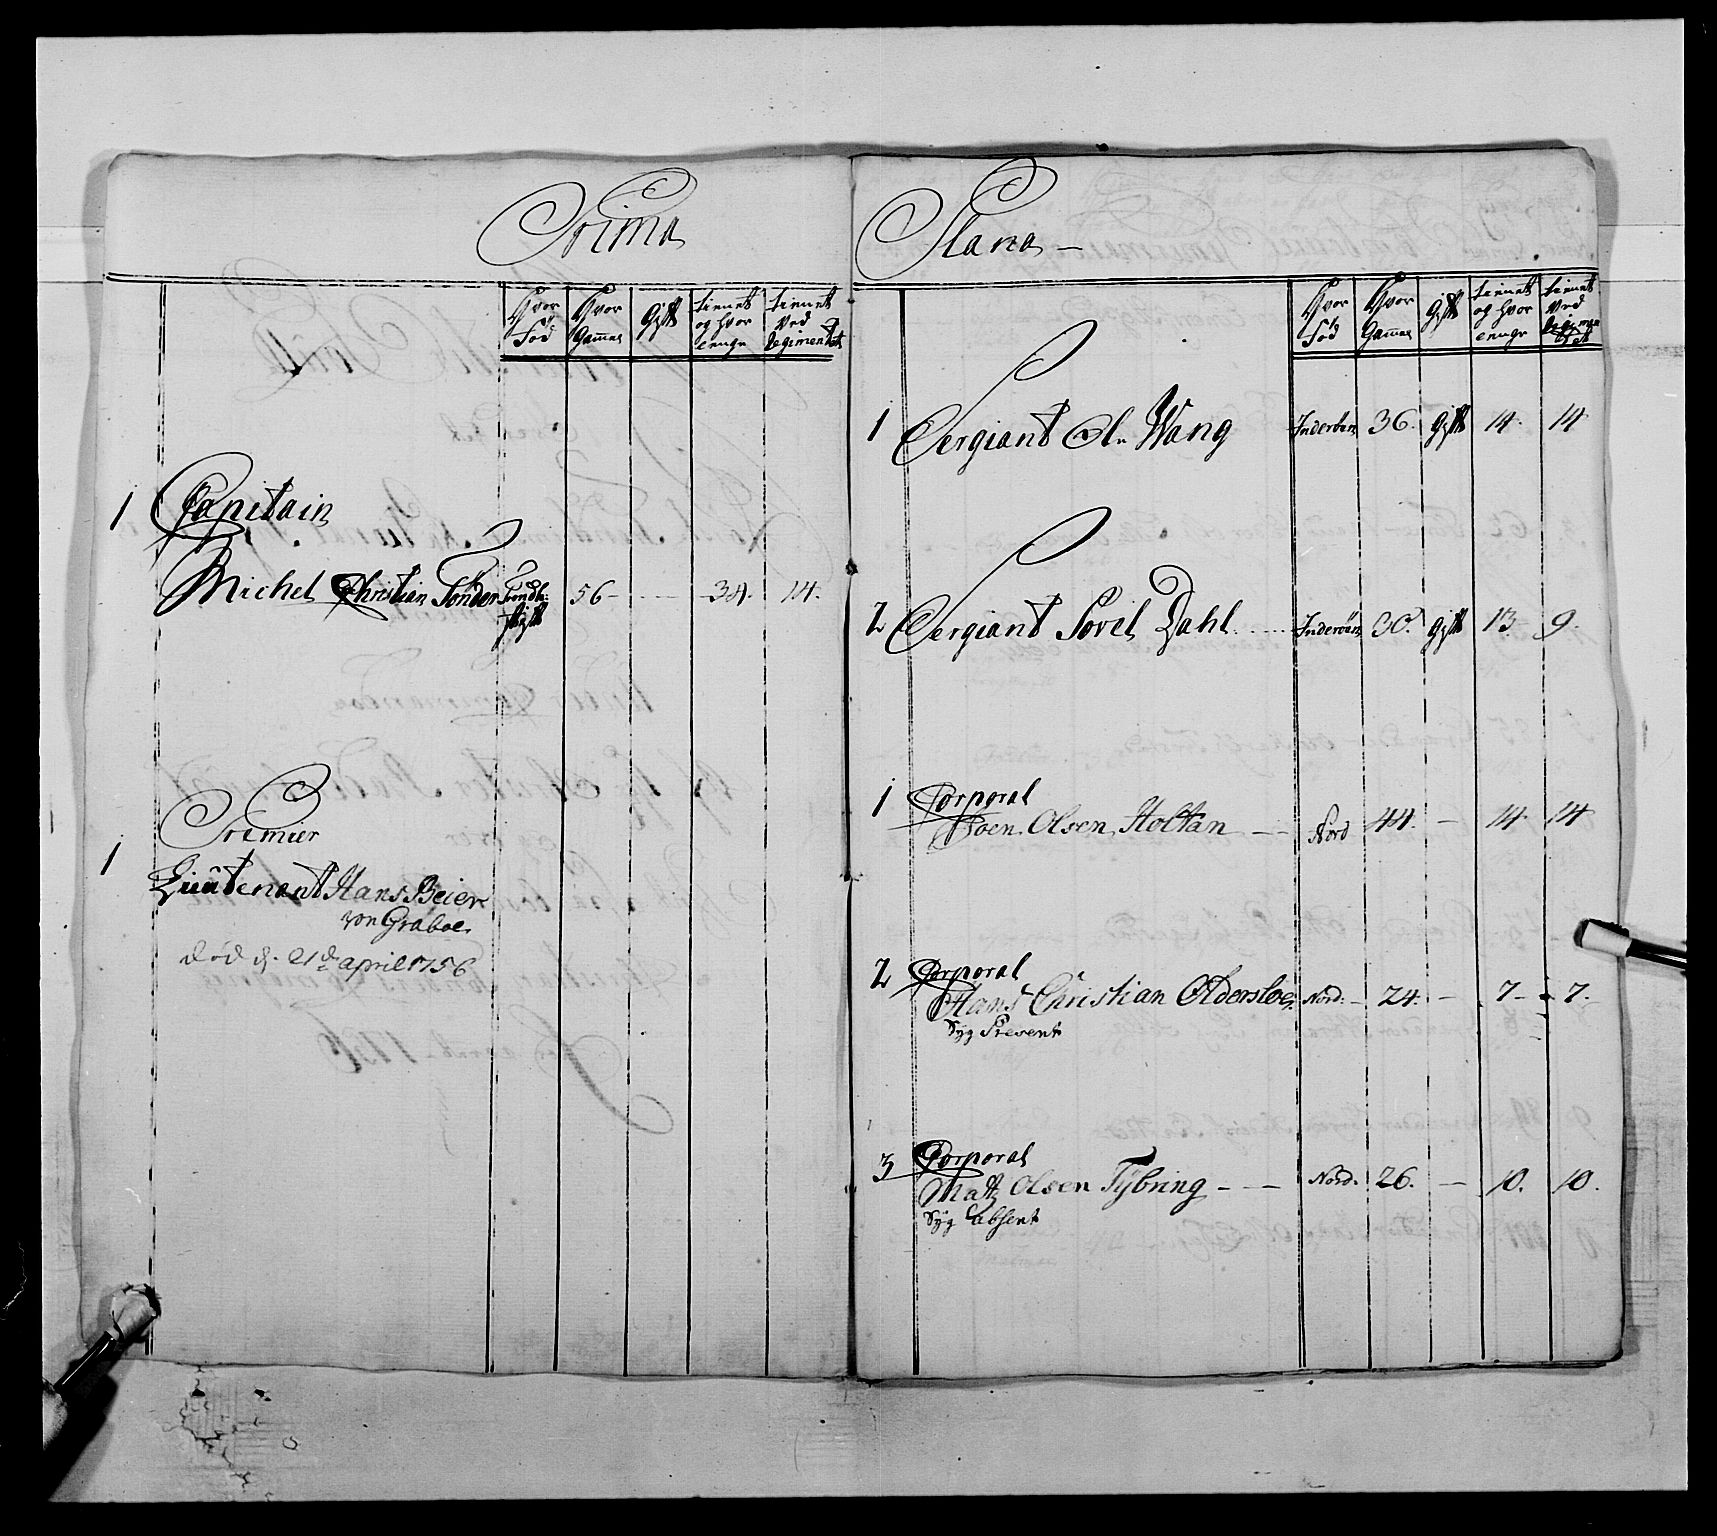 Prima
Hvor Fød
Hvor Gammel
Gift
tienet og hvor lenge
tienet Ved Regimentet
1 Capitain
Michel Christian Tønder Trondh: Stift 56 - - 34. 14.
1 Premier
Lieutenant Hans Beier
von Graboe
død d. 21de april 1756
Plana
Hvor Fød
Hvor Gammel
Gift
tienet og hvor lenge
tienet Ved Regimentet
1 Sergiant Ol. Wang Inderøen 36. gift 14. 14
2 Sergiant Sovel Dahl Inderøen 30. gift 13 9.
1 Corporal
Joen Olsen Holtan Nord 44. - 14. 14
2 Corporal
Hans Christian Oldersloe Nord. 24. - 7 - 7.
Syg Present
3 Corporal
Matz Olsen Tÿbring Nord. 26. - 10. 10.
Syg absent